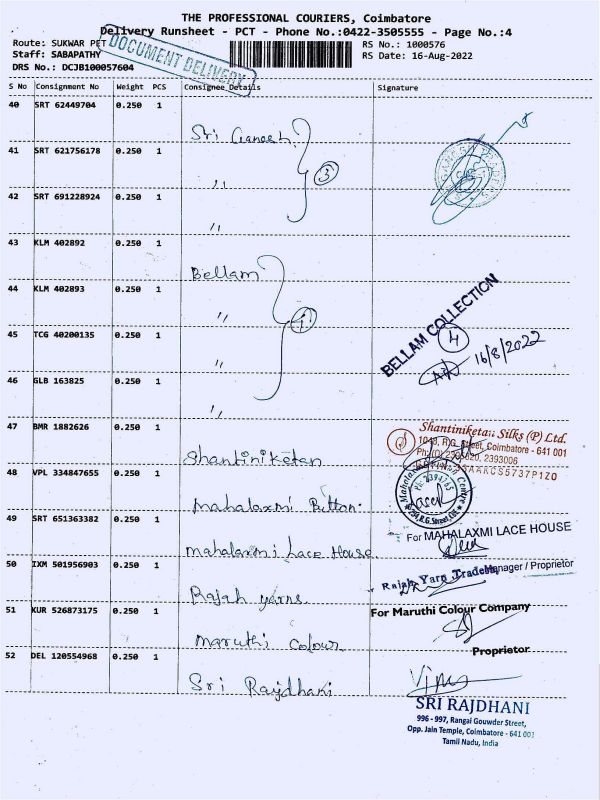 THE PROFESSIONAL COURIERS, Coimbatore
Delivery Runsheet - PCT - Phone No.:0422-3505555 - Page No.:4
Route: SUKWAR PET
RS No.: 1000576
Staff: SABAPATHY
RS Date: 16-Aug-2022
DRS No.: DCJB100057604
DOCUMENT DELIVERY
S No Consignment No Weight PCS Consignee Details Signature
40 SRT 62449704 0.250 1 Sri Ganesh
41 SRT 621756178 0.250 1 ,, 3
42 SRT 691228924 0.250 1 ,,
43 KLM 402892 0.250 1 Bellam
44 KLM 402893 0.250 1 ,,
BELLAM COLLECTION
4
16/8/2022
45 TCG 40200135 0.250 1 ,,
46 GLB 163825 0.250 1 ,,
47 BMR 1882626 0.250 1 Shantiniketan
Shantiniketan Silks (P) Ltd.
1049, R.G. Street, Coimbatore - 641 001
48 VPL 334847655 0.250 1 Mahalaxmi Button.
49 SRT 651363382 0.250 1 Mahalaxmi Lace House
For MAHALAXMI LACE HOUSE
Manager / Proprietor
50 IXM 501956903 0.250 1 Rajah yarns
Rajah Yarn Traders,
51 KUR 526873175 0.250 1 Maruthi Colour
For Maruthi Colour Company
Proprietor
52 DEL 120554968 0.250 1 Sri Rajdhani
SRI RAJDHANI
996 - 997, Rangai Gouwder Street,
Opp. Jain Temple, Coimbatore - 641 001
Tamil Nadu, India